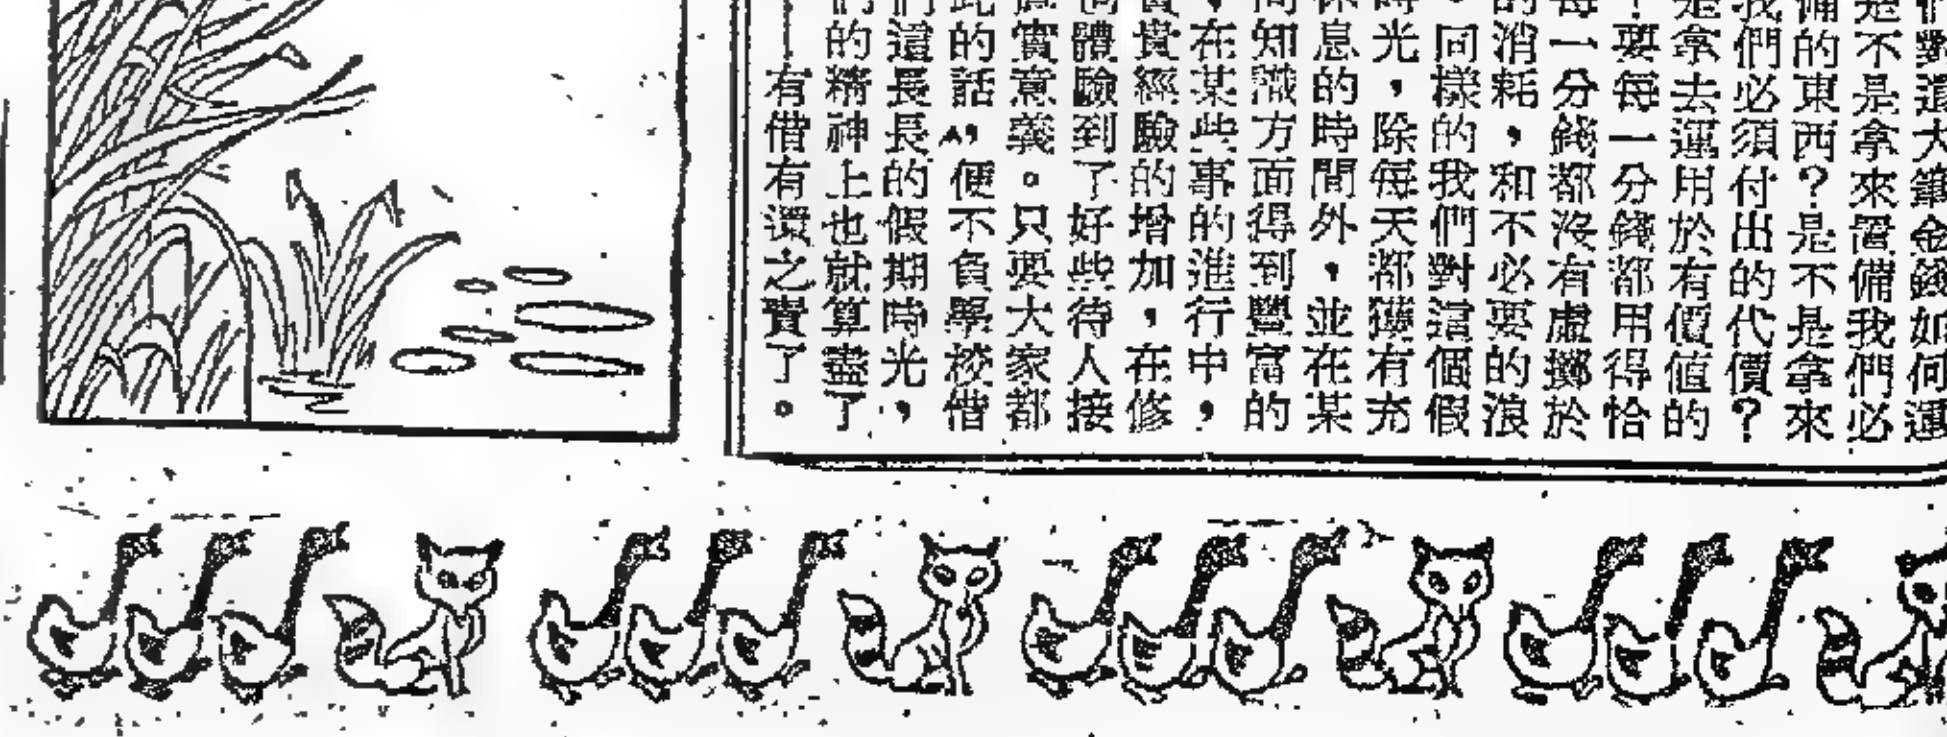 們對這大筆金錢如何運
是不是拿來置備我們必
備的東西？是不是拿來
我們必須付出的代價？
是拿去運用於有價值的
？要每一分錢都用得恰
每一分錢都沒有虛擲於
的消耗，和不必要的浪
。同樣的我們對這個假
時光，除每天都獲有充
休息的時間外，並在某
間知識方面得到豐富的
，在某些事的進行中，
寶貴經驗的增加，在修
體驗到了好些待人接
實意義。只要大家都
此的話，便不負學校借
們這長長的假期時光，
們的精神上也就算盡了
——有借有還之責了。